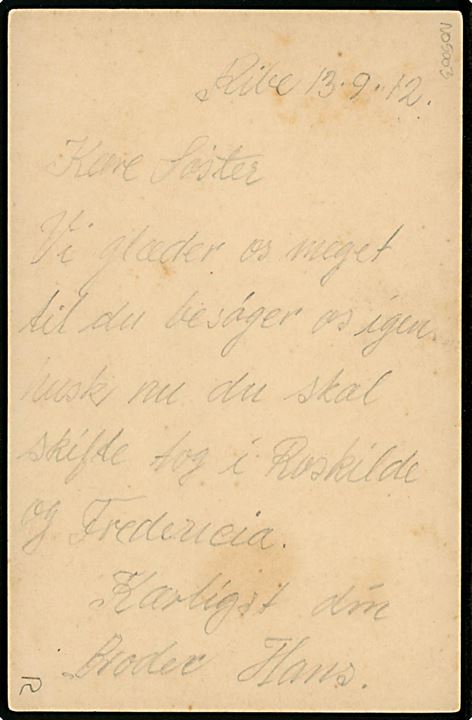 Ribe 13.9.12.
Kære Søster
Vi glæder os meget
til du besøger os igen.
husk nu du skal
skifte tog i Roskilde
og Fredericia.
Kærligst din
Broder Hans.